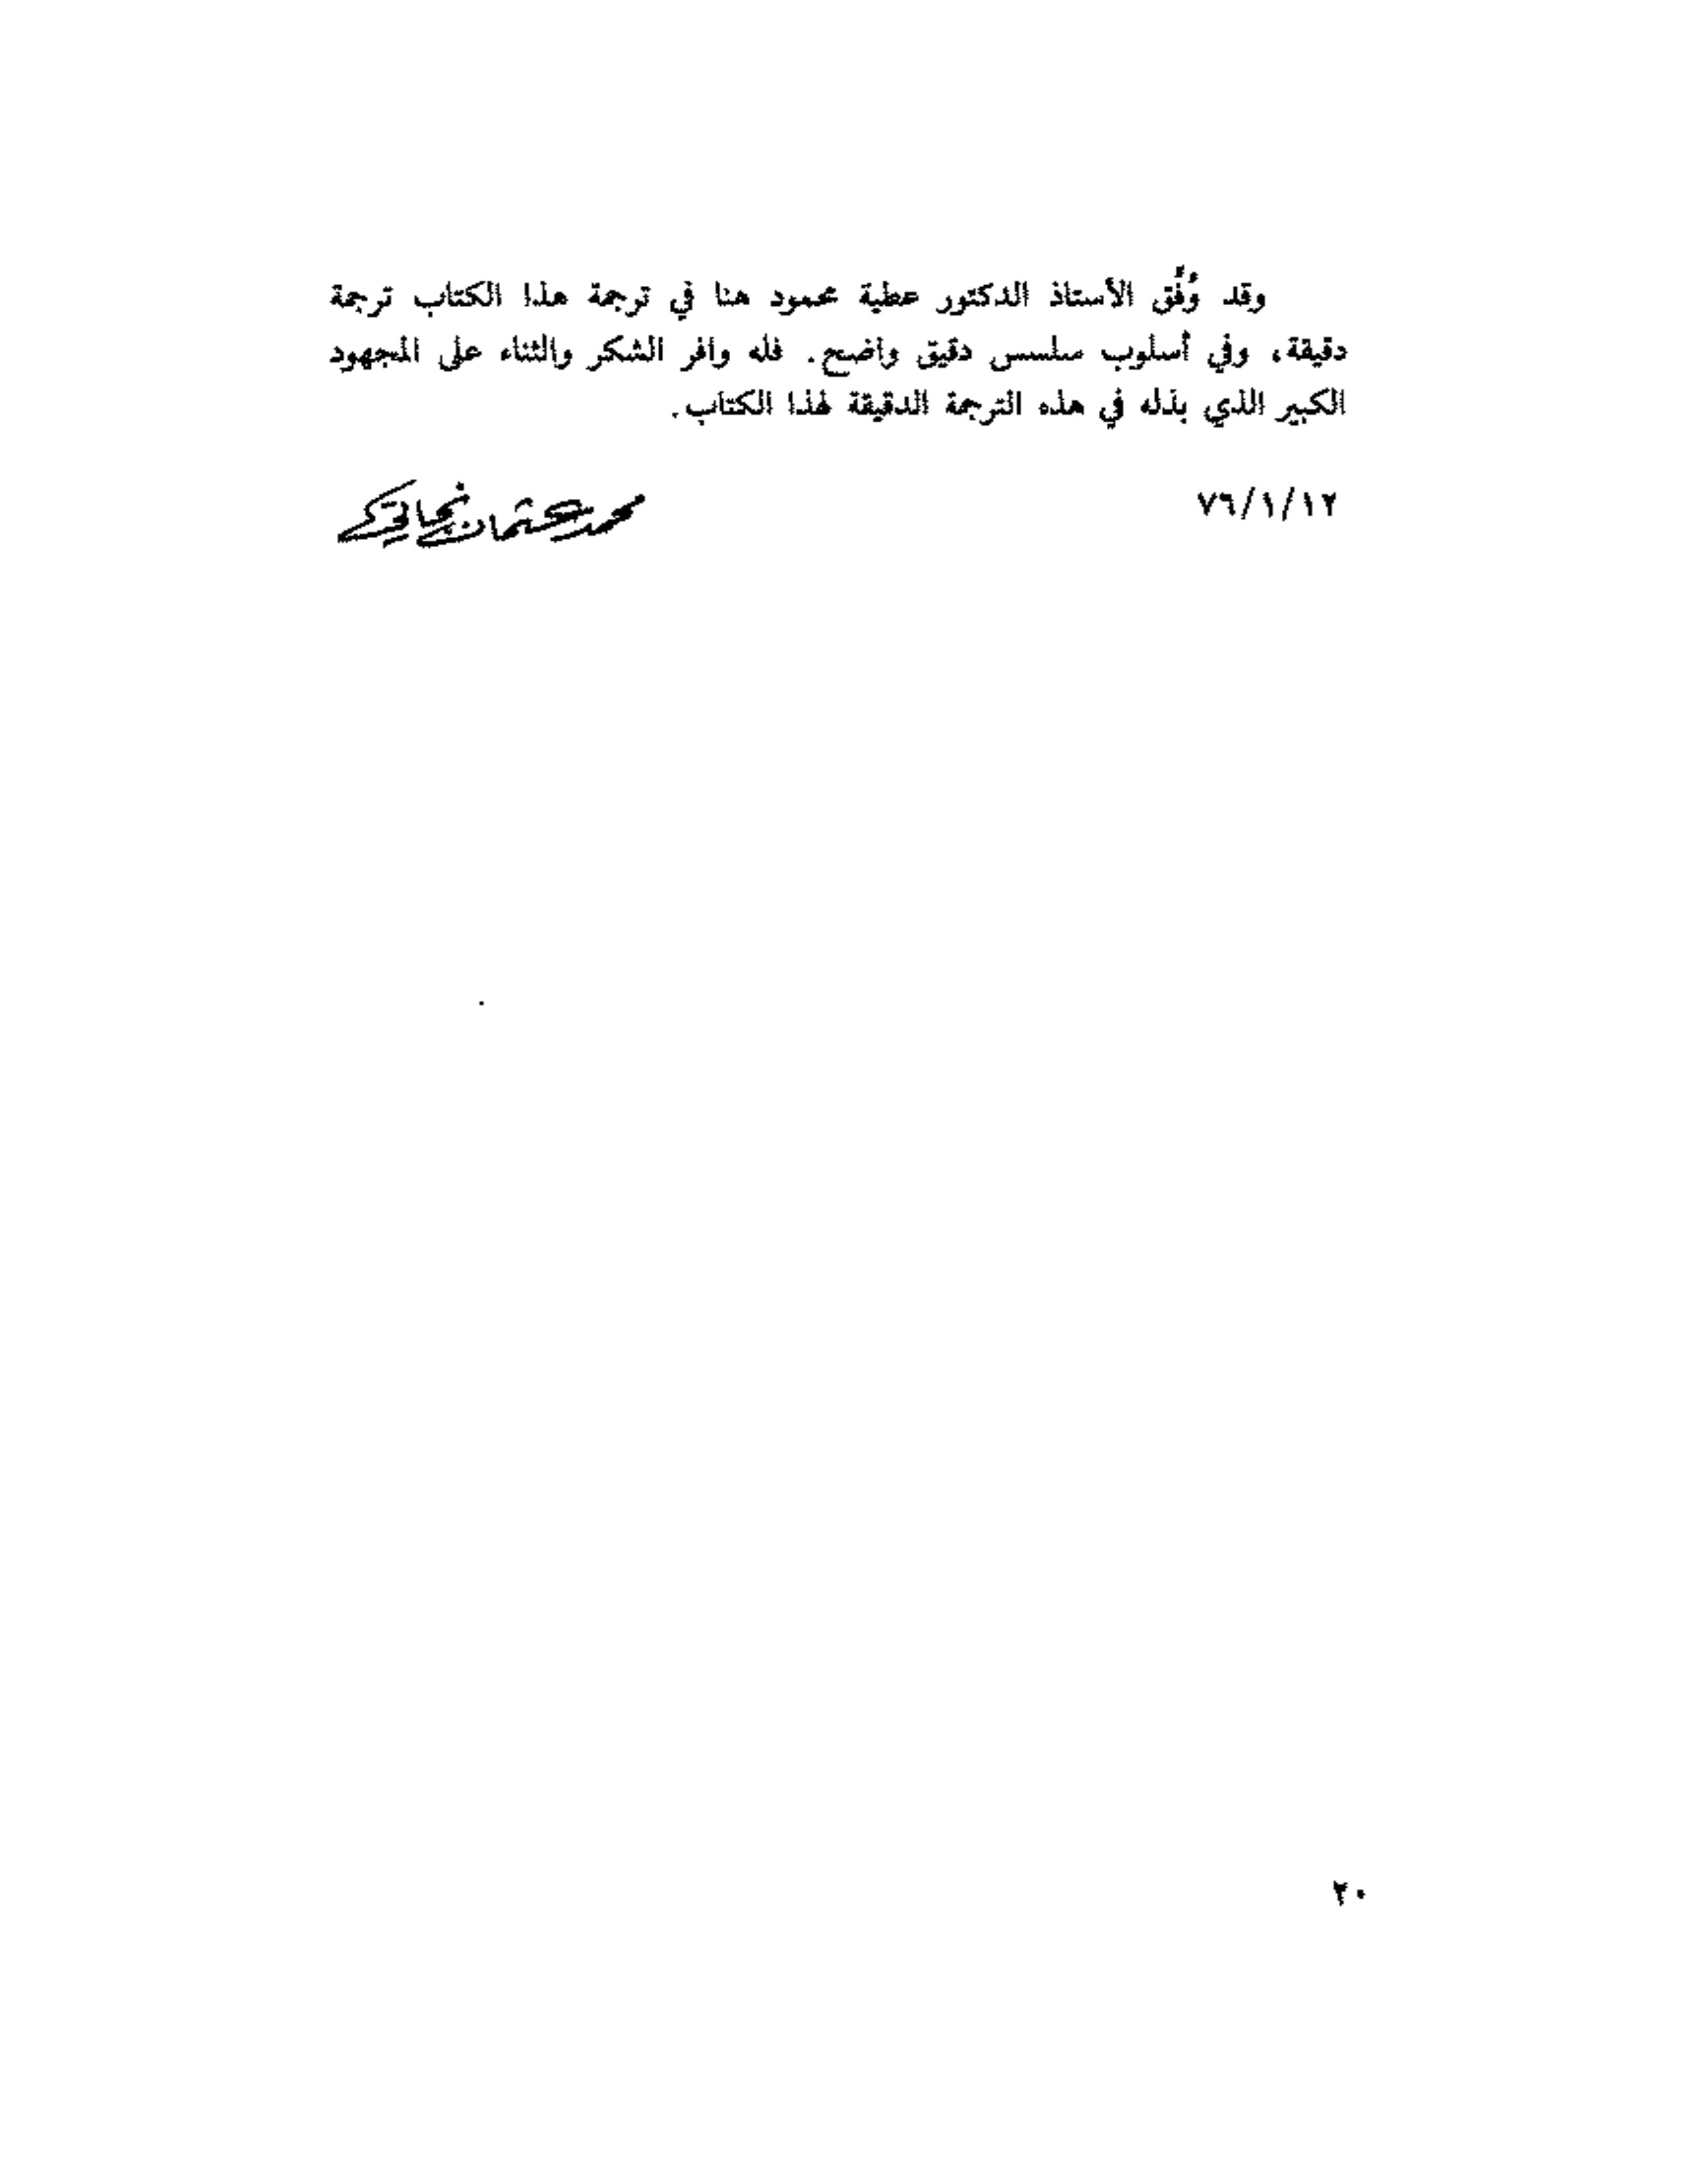 وقد وُفِّق الأستاذ الدكتور عطية محمود هنا في ترجمة هذا الكتاب ترجمة
دقيقة، وفي أسلوب سلس دقيق واضح. فله وافر الشكر والثناء على المجهود
الكبير الذي بذله في هذه الترجمة الدقيقة لهذا الكتاب.
١٢/١/٧٦
محمد عثمان نجاتي
٢٠